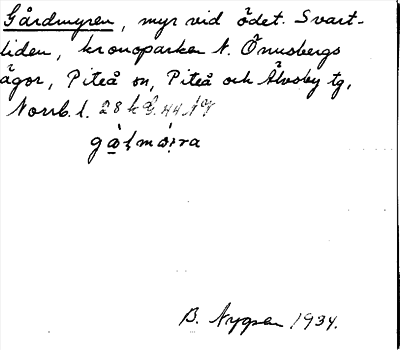 Gårdmyren, myr vid ödet. Svart-
liden, kronoparken N. Önusbergs
ägor, Piteå sn, Piteå och Älvsby tg,
Norrb. l. 28 k G. 44
B. Nygren 1934.